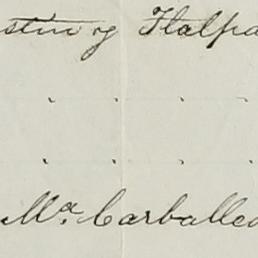 stin og Halpa
. . . .
. . . .
Mª. Carballed